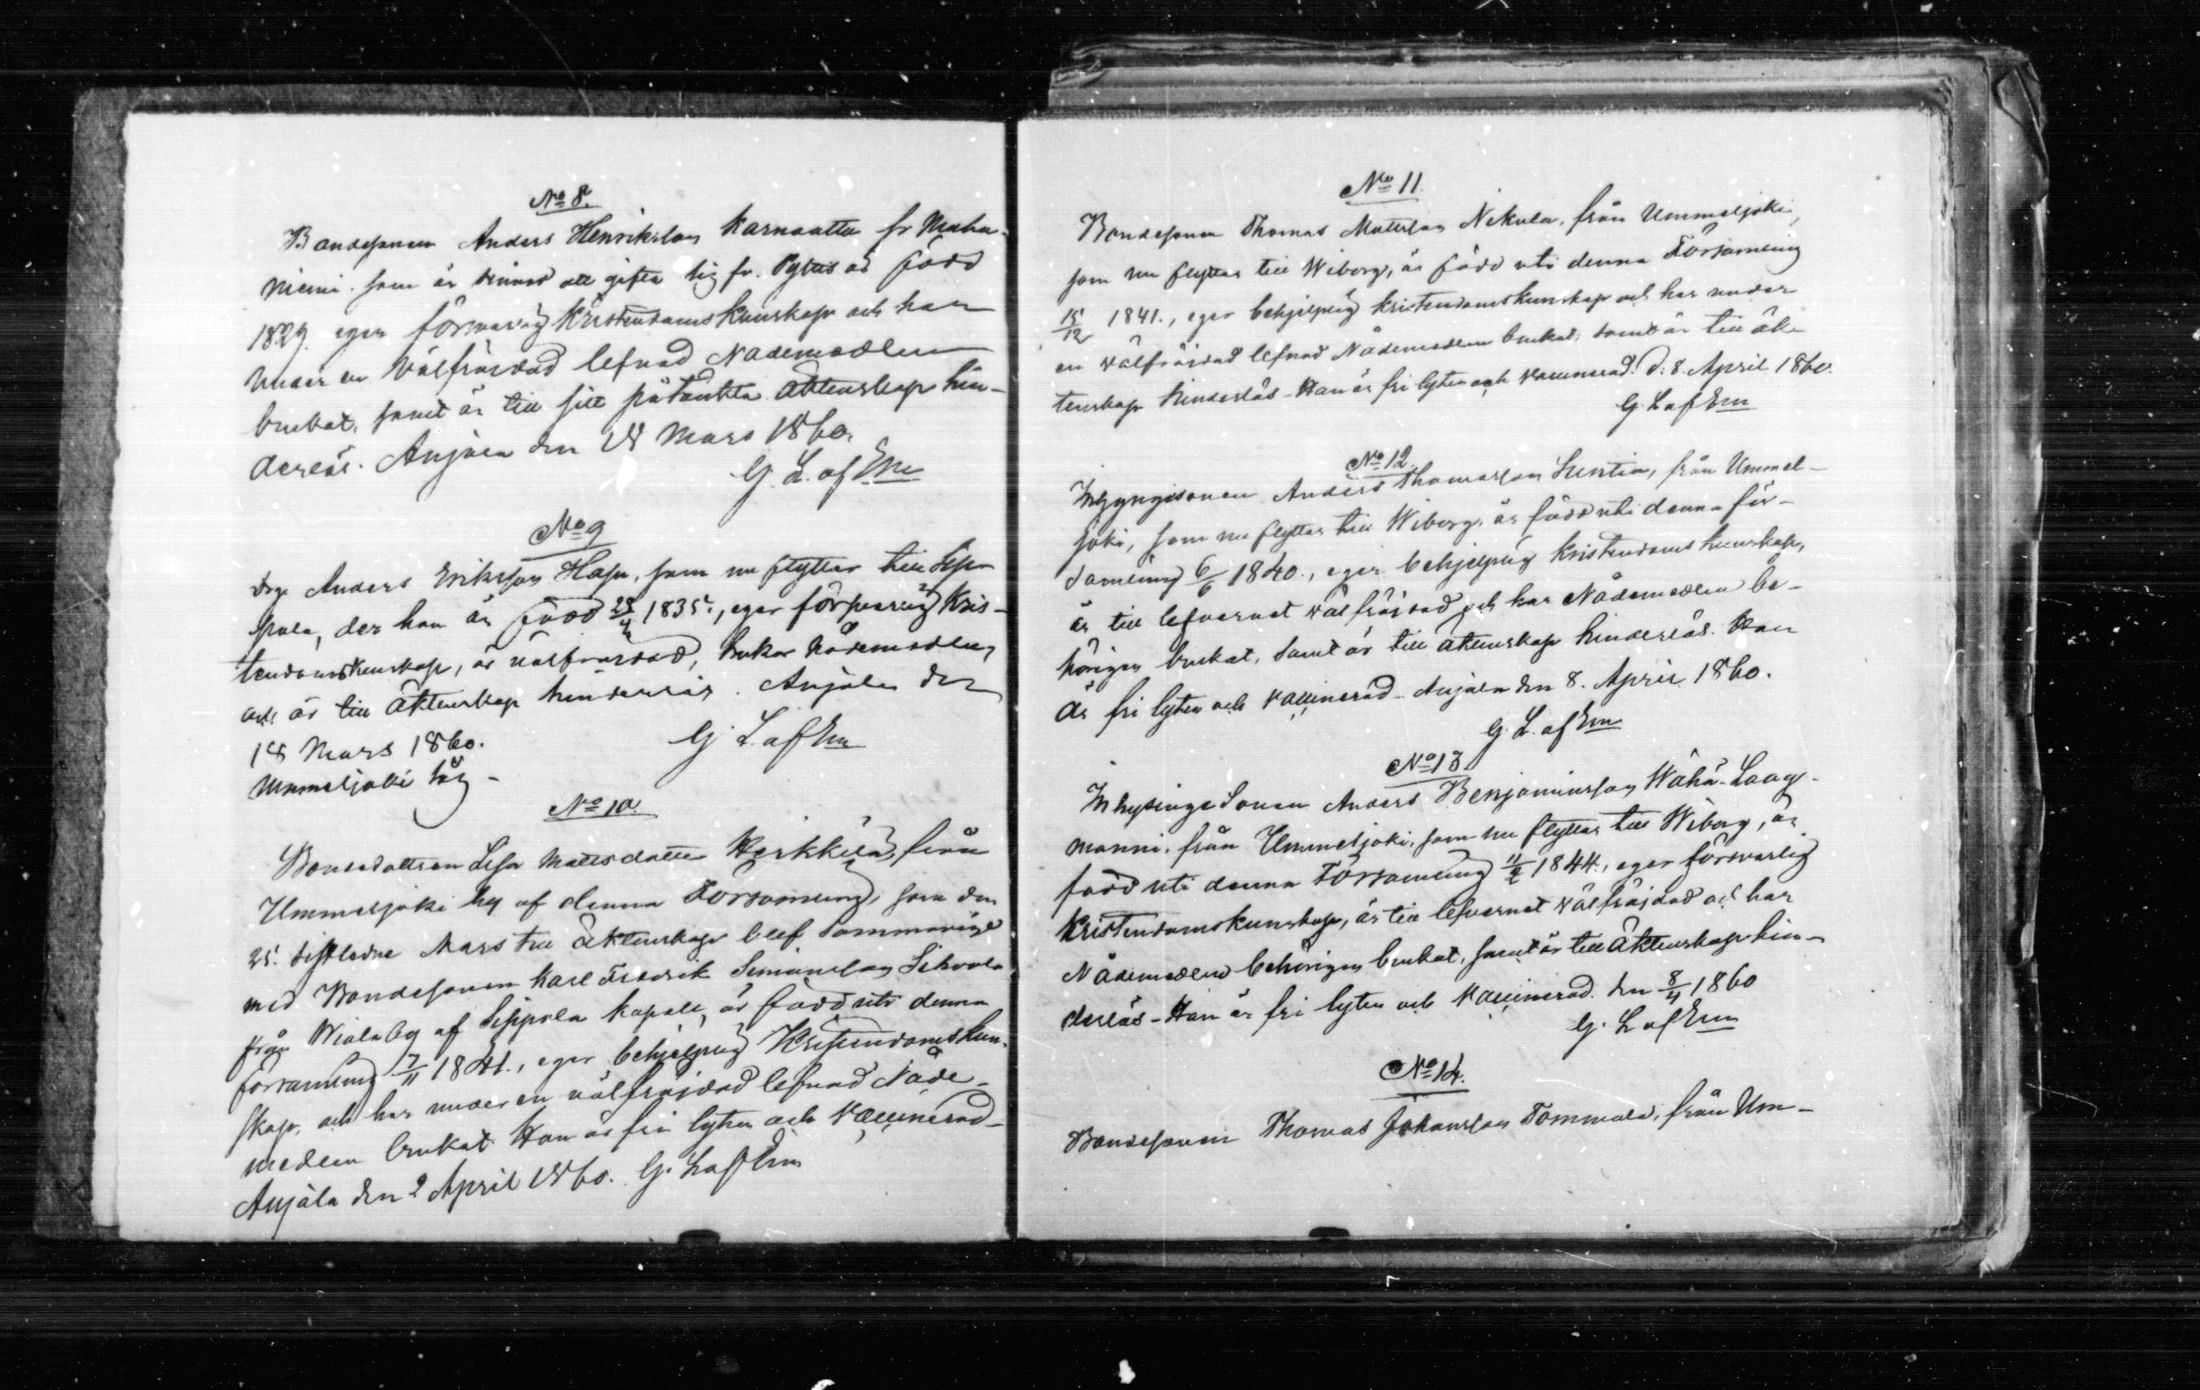 No 8.
Bondesonen Anders Henriksson Karnaatta fr Muha-
niemi som är sinnad att gifta sig fr. Pyttis är född
1829. eger försvarlig Kristendomskunskap och har
under en välfräjdad lefnad Nådemedlen
brukat, samt är till sitt påtänkta äktenskap hin-
derlös. Anjala den 18 Mars 1860.
G. L. af Em
No 9
Drg. Anders Eriksson Hasu, som nu flyttar till Sip-
pola, der han är född 28/4 1835., eger försvarlig Kris-
tendomskunskap, är välfräjdad, brukar Nådemedlen,
och är till äktenskap hinderlös. Anjala den
18 Mars 1860. G. L. af Em
Ummeljoki
No 10.
Bondedottren Lisa Mattsdotter Heikkilä, från
Ummeljoki by af denna Församling, som den
25. sistledne Mars till äktenskap blef sammanvigd
med Bondesonen Karl Fredrik Simonsson Sihvola
från Wiala by af Sippola kapell, är född uti denna
församling 7/11 1841., eger behjelplig Kristendomskun-
skap, och har under en välfräjdad lefnad Nåde-
medlen brukat. Hon är fri lyten och vaccinerad
Anjala den 2 April 1860. G. L af Em
No 11
Bondesonen Thomas Mattsson Nikula, från Ummeljoki,
som nu flyttar till Wiborg, är född uti denna Församling
15/12 1841., eger behjelplig kristendomskunskap och har under
en välfräjdad lefnad Nådemedlen brukat, samt är till äk-
tenskap hinderlös - Han är fri lyten och vaccinerad. d. 8. April 1860.
G. L af Em
No 12.
Inhysingesonen Anders Thomasson Suntia, från Ummel-
joki, som nu flyttar till Wiborg, är född uti denna för-
samling 6/6 1840., eger behjelplig kristendomskunskap,
är till lefvernet välfräjdad och har Nådemedlen be-
hörigen brukat, samt är till äktenskap hinderlös. Han
är fri lyten och vaccinerad - Anjala den 8. April 1860.
G. L. af Em
No 13
Inhysinge Sonen Anders Benjaminsson Wähä-Laag-
manni, från Ummeljoki, som nu flyttar till Wiborg, är
född uti denna Församling 11/2 1844., eger försvarlig
Kristendomskunskap, är till lefvernet välfräjdad och har
Nådemedlen behörigen brukat, samt är till äktenskap hin-
derlös - Han är fri lyten och Vaccinerad. den 8/4 1860
G. L af Em
No 14.
Bondesonen Thomas Johansson Tommola, från Um-